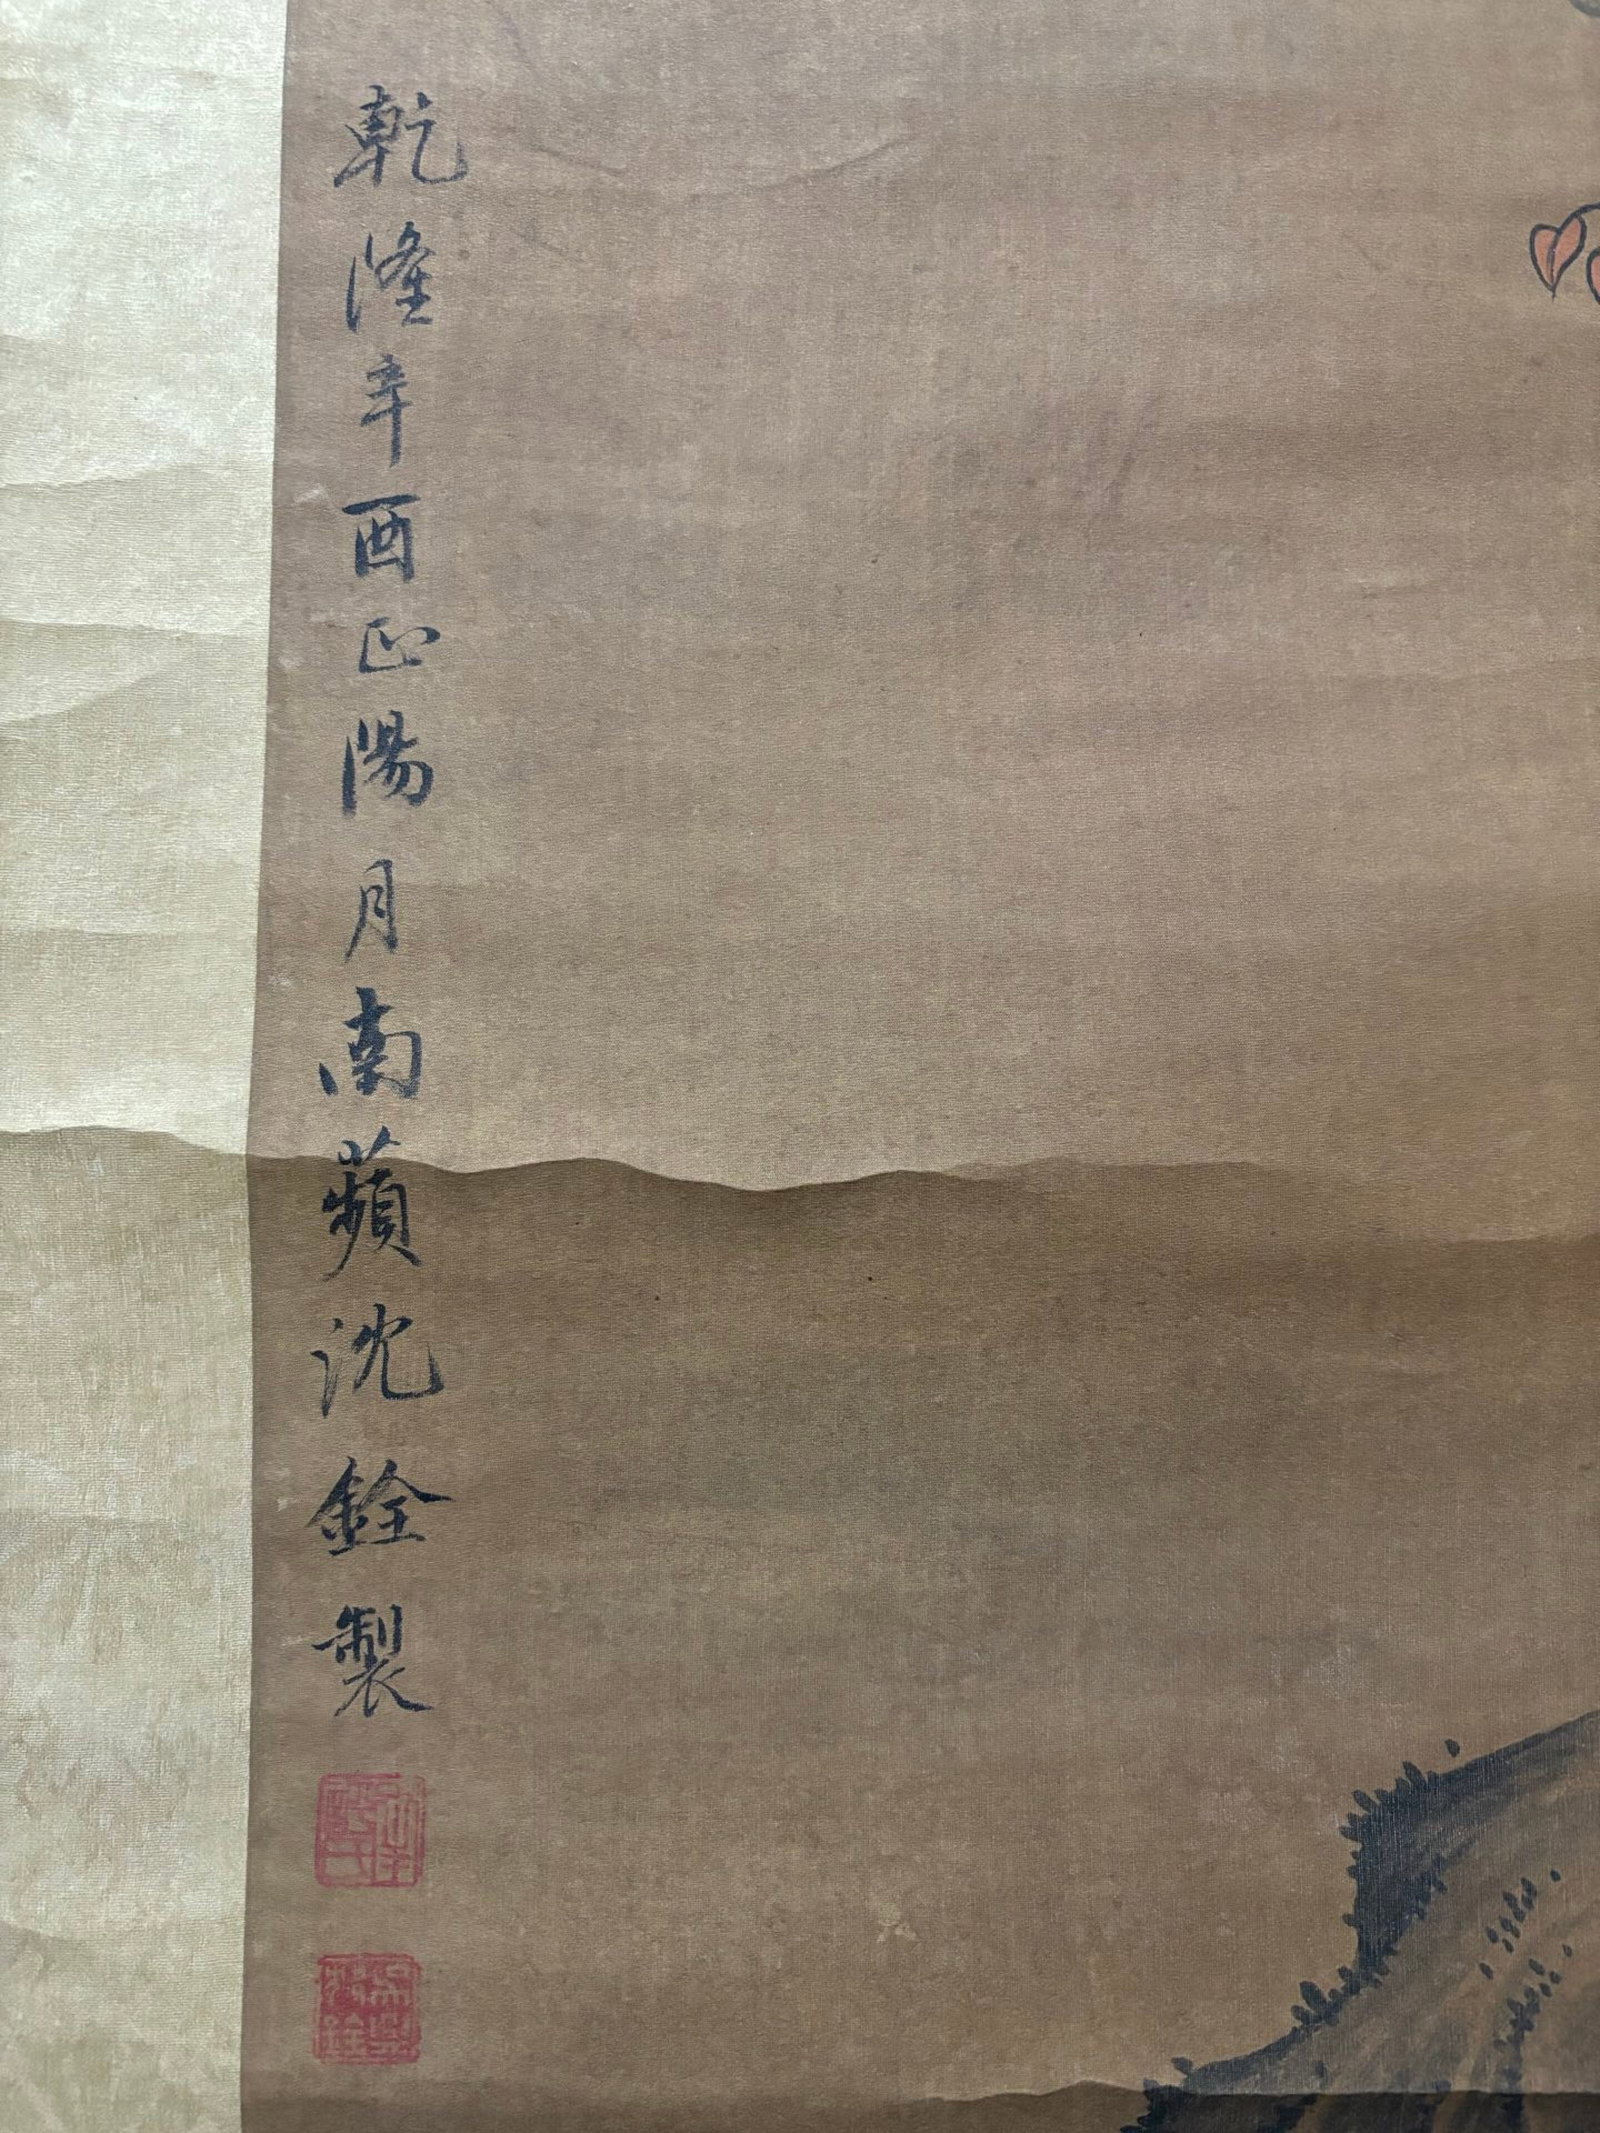 乾隆辛酉正陽月南蘋沈銓製